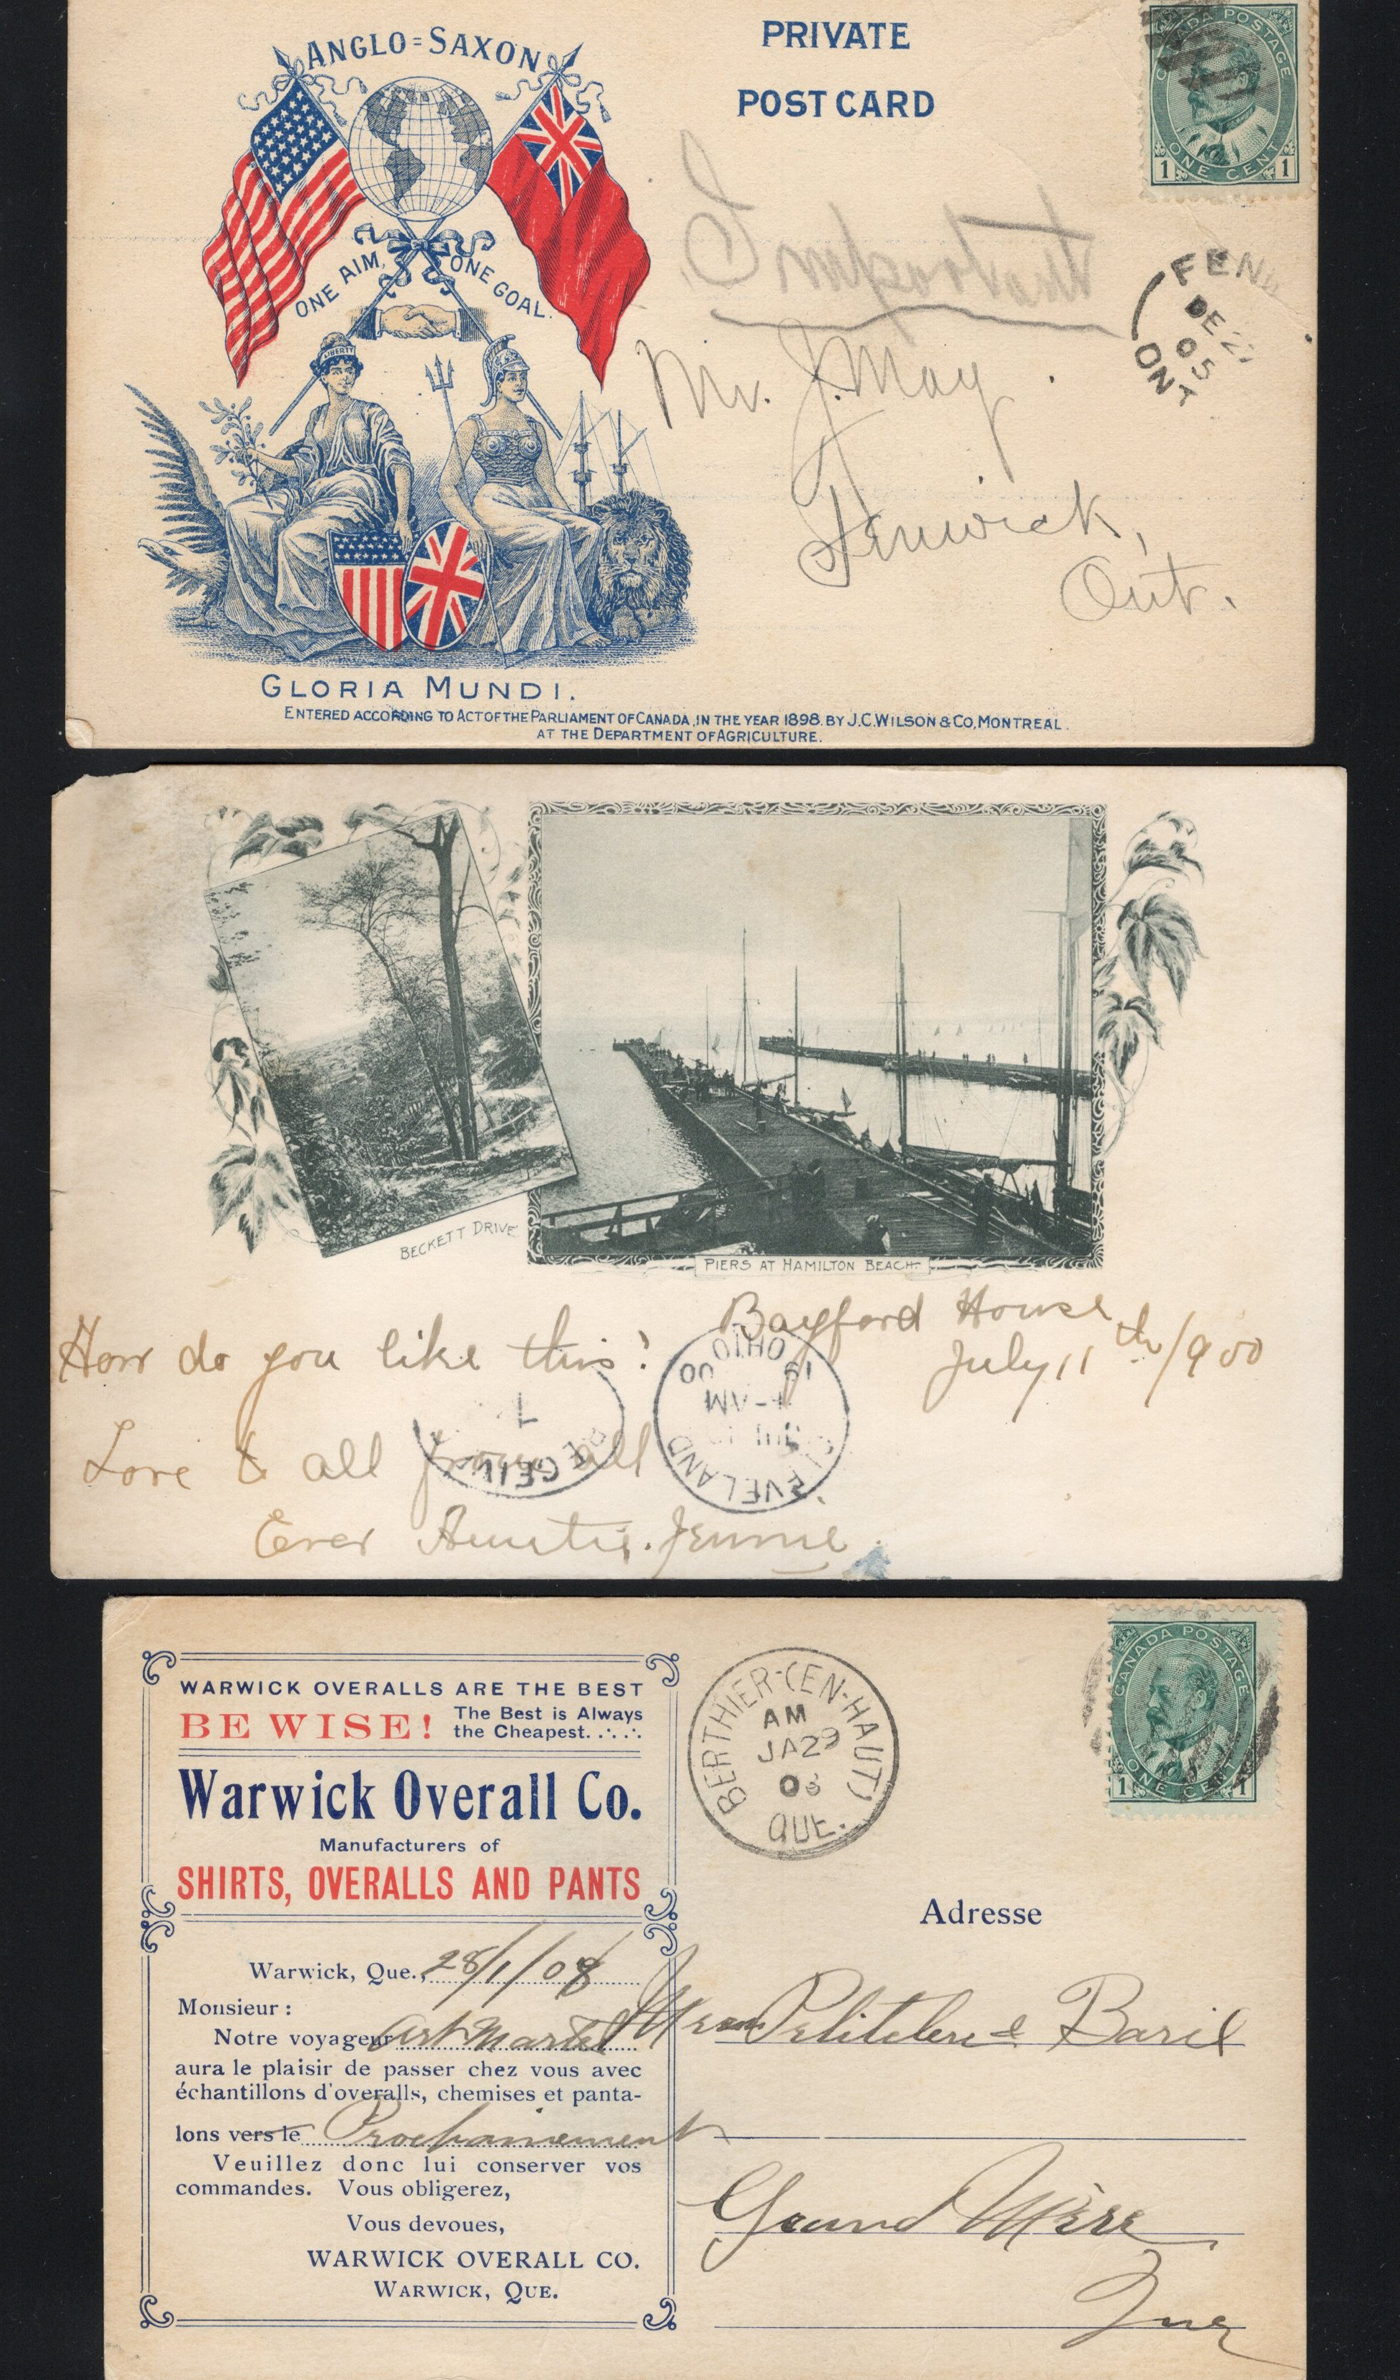 ANGLO=SAXON
ONE AIM, ONE GOAL.
LIBERTY
GLORIA MUNDI.
ENTERED ACCORDING TO ACT OF THE PARLIAMENT OF CANADA, IN THE YEAR 1898. BY J.C. WILSON & CO, MONTREAL.
AT THE DEPARTMENT OF AGRICULTURE.
PRIVATE
POST CARD
CANADA POSTAGE
ONE CENT
1 1
FENW
DE 2
05
ONT
Mr. J. May
Fenwick,
Ont.
BECKETT DRIVE
PIERS AT HAMILTON BEACH.
Bayford House
July 11th/900
How do you like this?
Love to all from all
Ever Auntie Jennie.
CLEVELAND
1-AM
19 00
OHIO
WARWICK OVERALLS ARE THE BEST
BE WISE! The Best is Always
the Cheapest.
Warwick Overall Co.
Manufacturers of
SHIRTS, OVERALLS AND PANTS
Warwick, Que., 28/1/08
Monsieur :
Notre voyageur Art Martel
aura le plaisir de passer chez vous avec
échantillons d'overalls, chemises et panta-
lons vers le Prochainement
Veuillez donc lui conserver vos
commandes. Vous obligerez,
Vous devoues,
WARWICK OVERALL CO.
WARWICK, QUE.
BERTHIER-(EN-HAUT)
AM
JA 29
QUE.
CANADA POSTAGE
ONE CENT
1 1
Adresse
& Baril
Grand Mère
Que